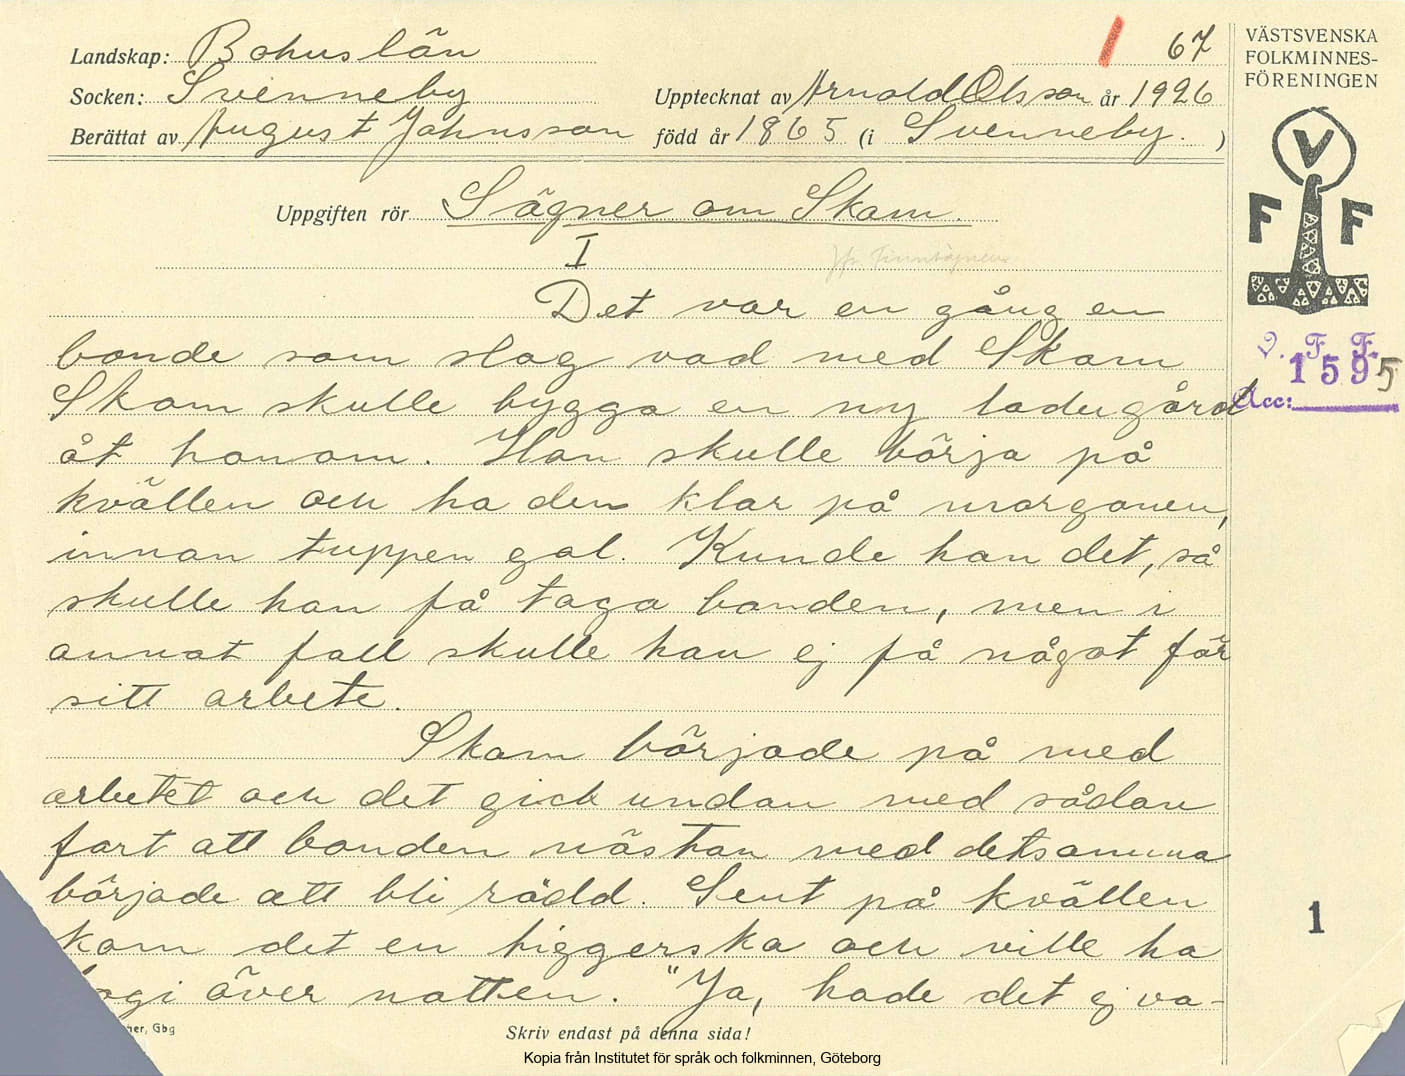 Landskap: Bohuslän
67
Socken: Svenneby
Upptecknat av Arnold Olsson år 1926
Berättat av August Johnsson född år 1865 (i Svenneby. )
VÄSTSVENSKA
FOLKMINNES-
FÖRENINGEN
V
F F
Uppgiften rör Sägner om Skam.
I
Det var en gång en
bonde som slog vad med Skam
Skam skulle bygga en ny ladugård
åt honom. Han skulle börja på
kvällen och ha den klar på morgonen,
innan tuppen gol. Kunde han det, så
skulle han få taga bonden, men i
annat fall skulle han ej få något för
sitt arbete.
Skam började på med
arbetet och det gick undan med sådan
fart att bonden nästan med detsamma
började att bli rädd. Sent på kvällen
kom det en tiggerska och ville ha
logi över natten. "Ja, hade det ej va-
V. F. F.
1595
Acc:
1
her, Gbg
Skriv endast på denna sida!
Kopia från Institutet för språk och folkminnen, Göteborg